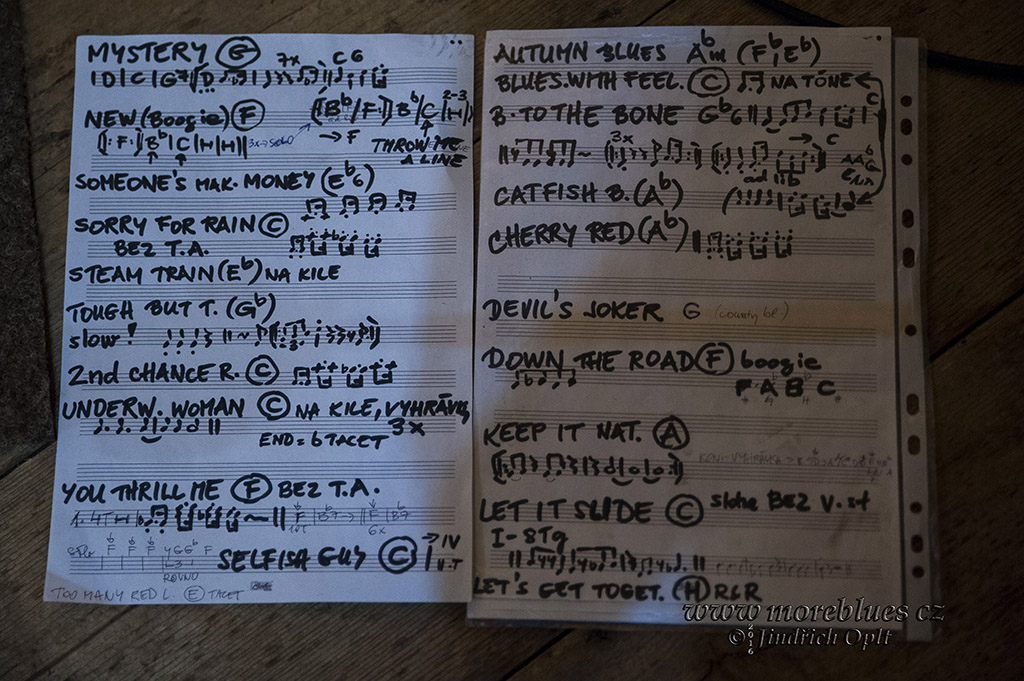 MYSTERY (G) 7x C6
| D | C | G7
NEW (Boogie) (F) (Bb/F) Bb | C | H | 2-3
F Bb | C | H | H || 3x → SOLO → F THROW ME
A LINE
SOMEONE'S MAK. MONEY (Eb6)
SORRY FOR RAIN (C)
BEZ T.A.
STEAM TRAIN (Eb) NA KILE
TOUGH BUT T. (Gb)
slow!
2nd CHANCE R. (C)
UNDERW. WOMAN (C) NA KILE, 3x
END = 6 TACET
YOU THRILL ME (F) BEZ T.A.
6x
F F F G Gb F
ROVNO
SELFISH GUY (C) → IV
TOO MANY RED L. (E) TACET
AUTUMN BLUES Abm (Fb, Eb)
BLUES.WITH FEEL. (C) NA TÓNE
B. TO THE BONE Gb6 C
3x → C
ad lib
CATFISH B. (Ab)
CHERRY RED (Ab)
DEVIL'S JOKER G
DOWN THE ROAD (F) boogie
F A B C
KEEP IT NAT. (A)
LET IT SLIDE (C) sloha BEZ V. st
I - 8Tg
LET'S GET TOGET. (H) R&R
www moreblues cz
© 2016 Jindřich Oplt